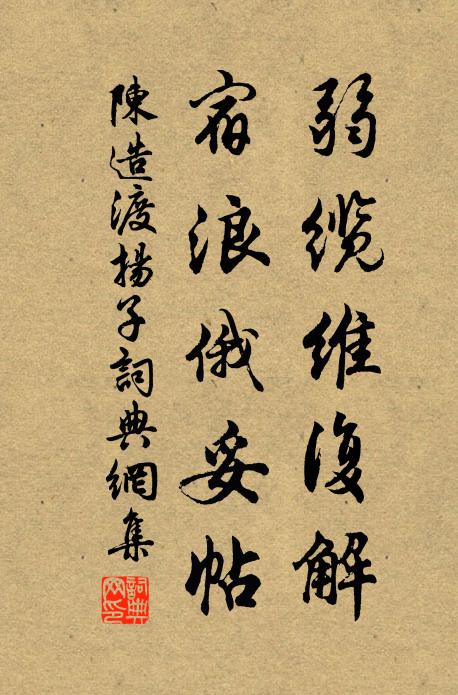 弱缆维复解
宿浪俄妥帖
陳造渡揚子詞典網集
詞典网印